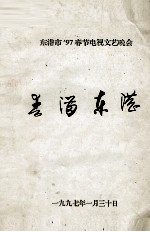 东港市'97春节电视文艺晚会
春满东港
一九九七年一月三十日